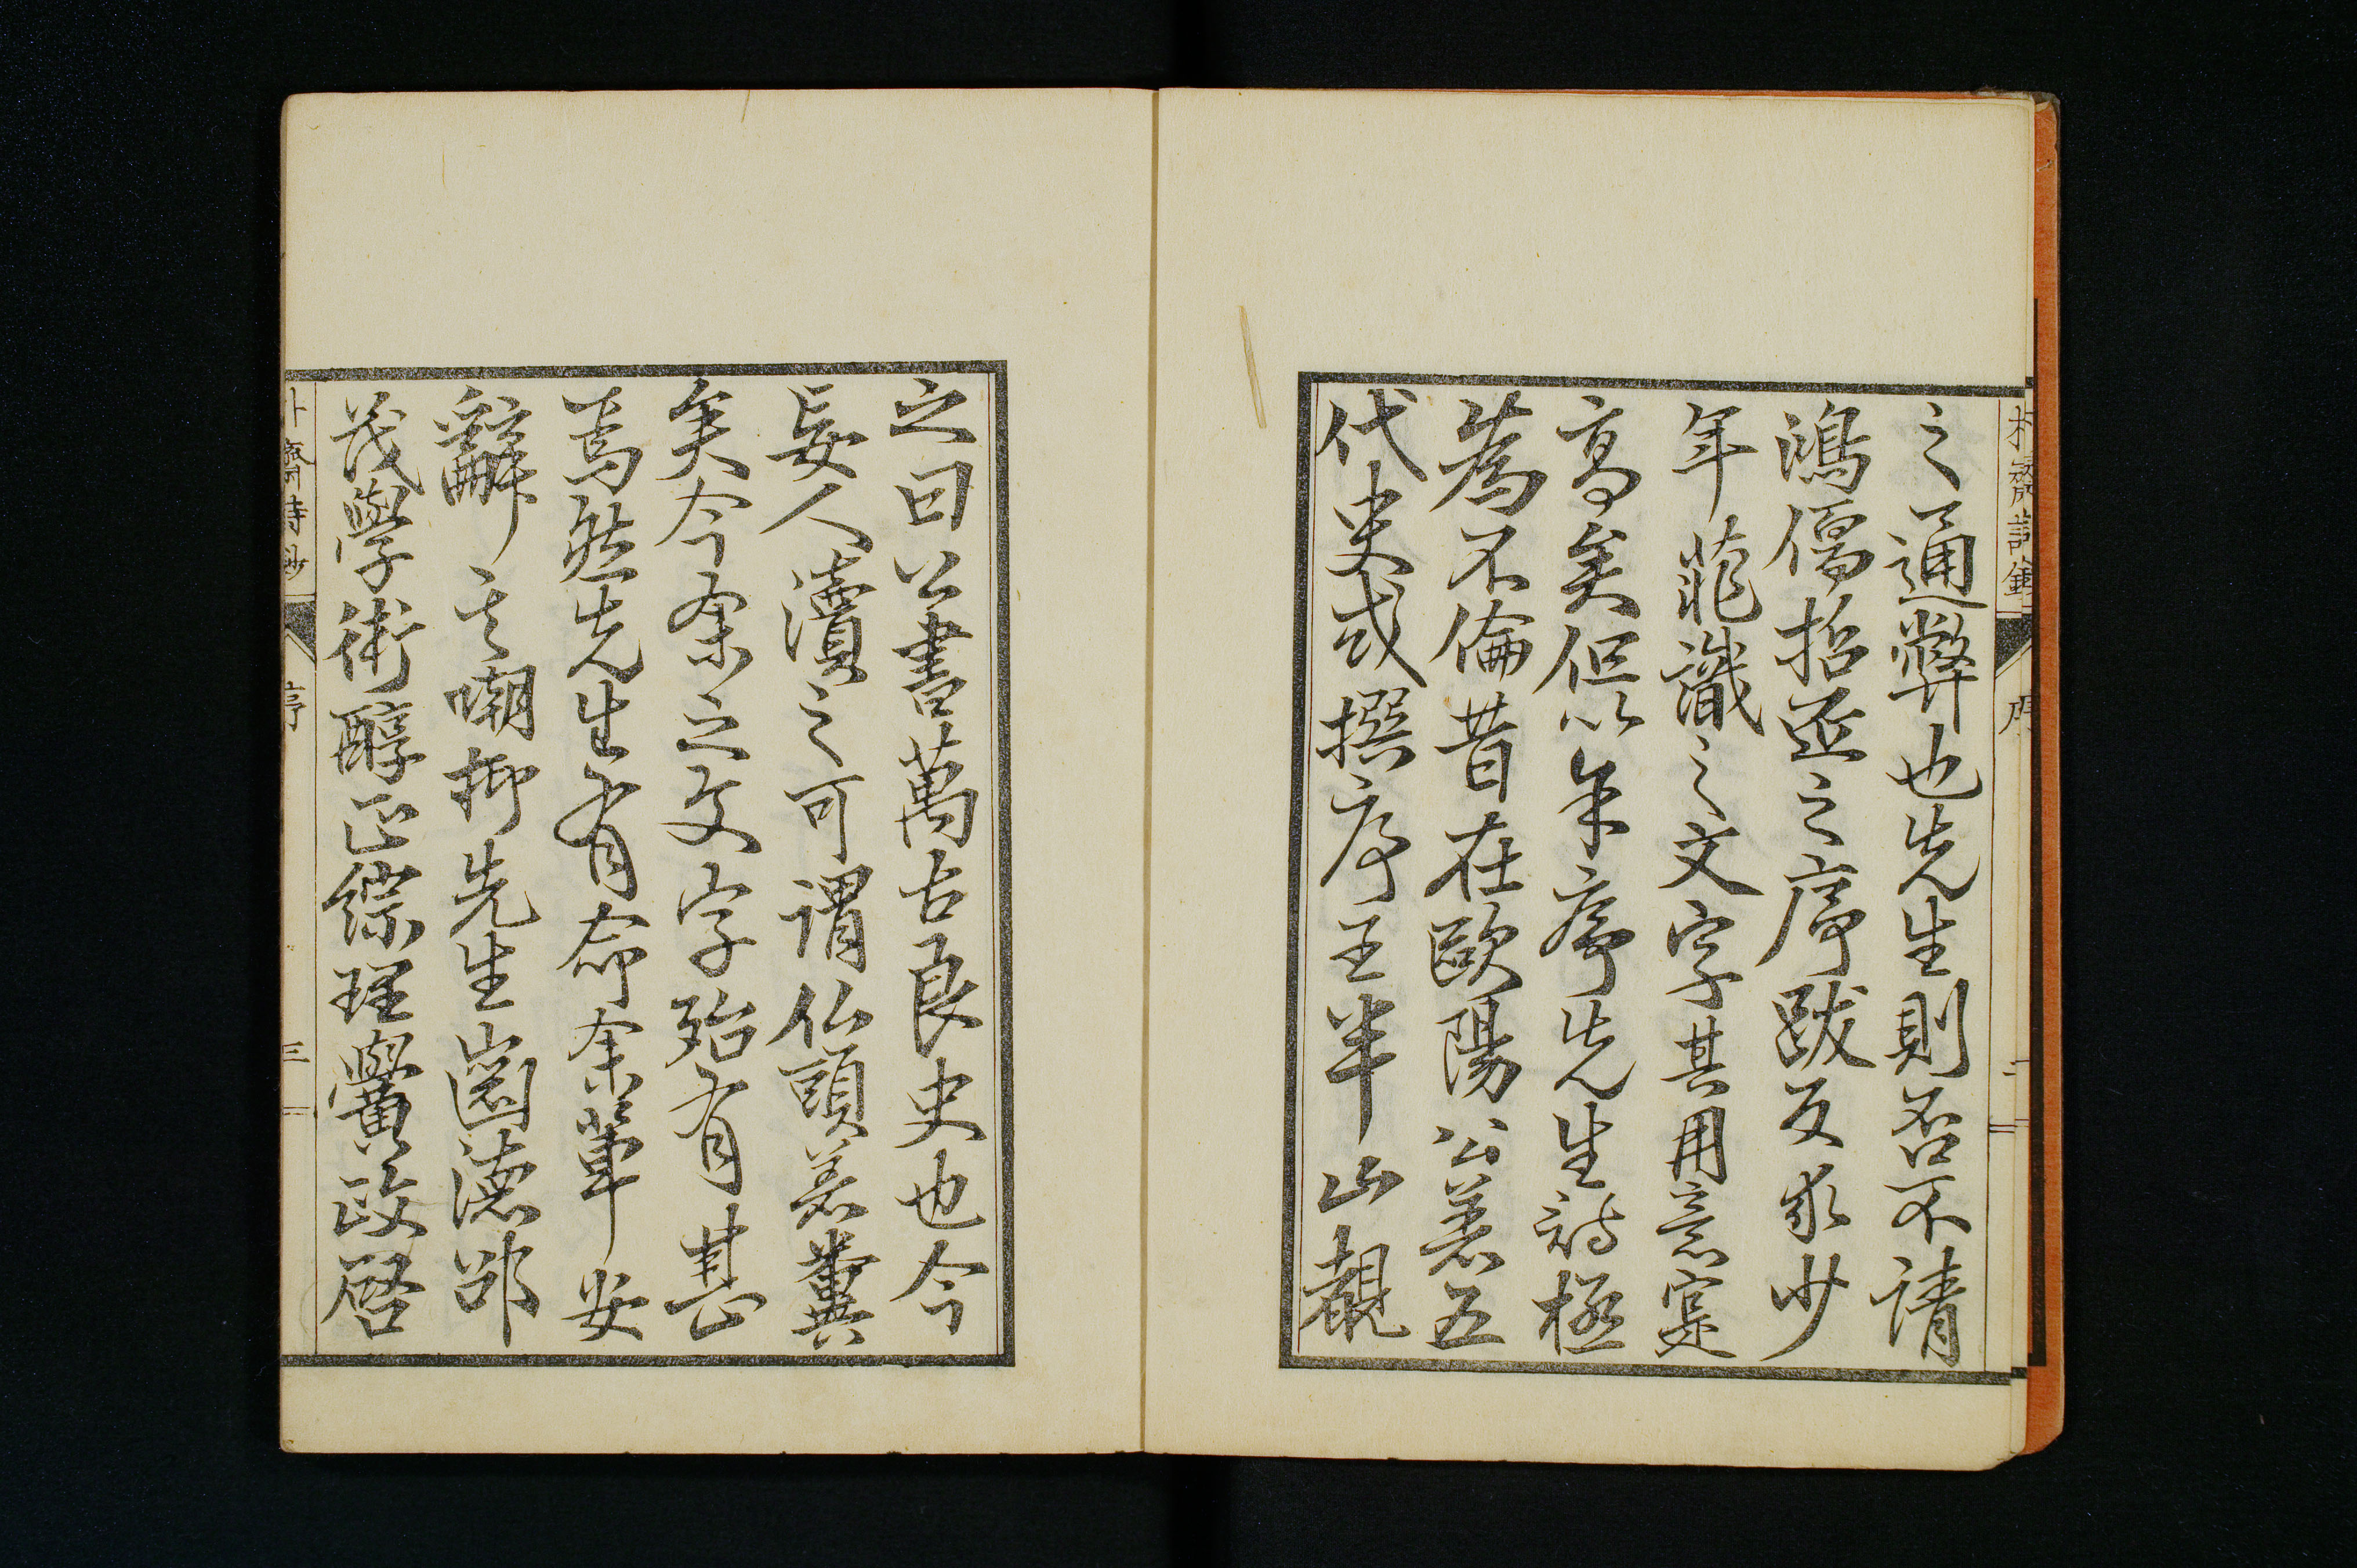 之通弊也先生則否不請
鴻儒哲匠之序跋反求少
年菲識之文字其用意寔
高矣但以余序先生詩極
為不倫昔在歐陽公著五
代史或撰序王半山覩
之曰公書萬古良史也今
妄人瀆之可謂仏頭著糞
矣今余之文字殆有甚
焉然先生有命余輩安
辭之嘲抑先生齒德邵
茂學術醇正綜理黌政啓
齋詩鈔
序
二
齋詩鈔
序
三